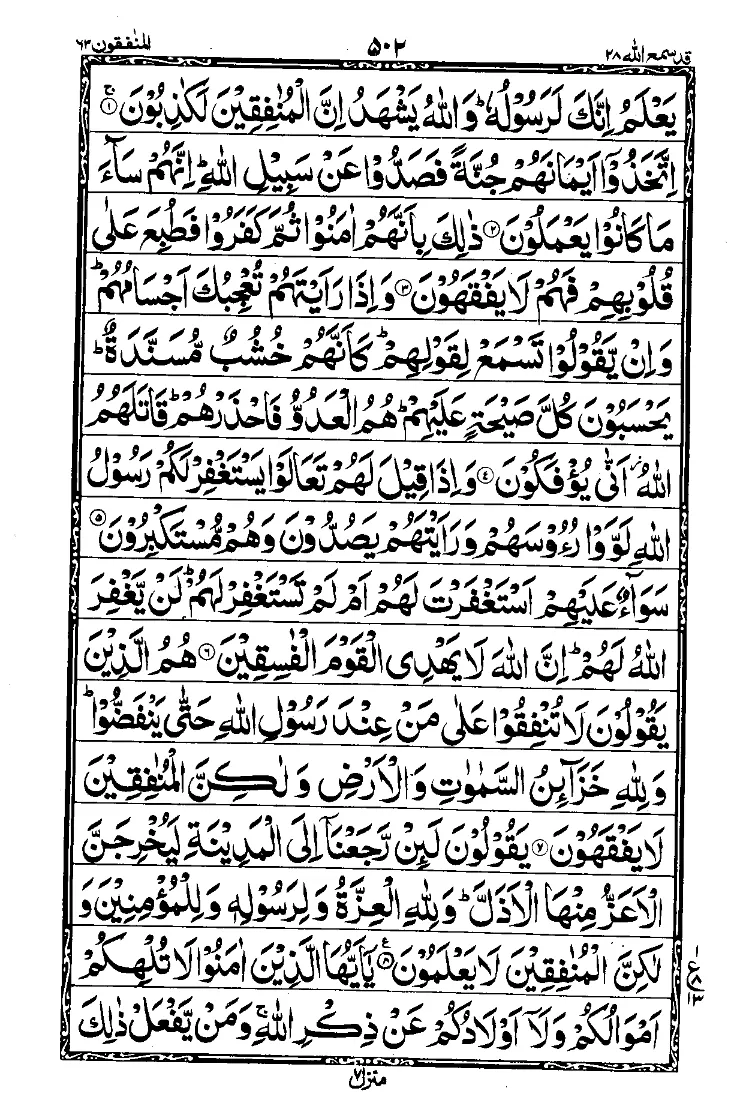 قد سمع الله ۲۸ ۵۰۲ المنٰفقون ۶۳
يَعْلَمُ اِنَّكَ لَرَسُوْلُهٗ ؕ وَاللّٰهُ يَشْهَدُ اِنَّ الْمُنٰفِقِيْنَ لَكٰذِبُوْنَ ۚ‏﴿۱﴾
اِتَّخَذُوْۤا اَيْمَانَهُمْ جُنَّةً فَصَدُّوْا عَنْ سَبِيْلِ اللّٰهِ ؕ اِنَّهُمْ سَآءَ
مَا كَانُوْا يَعْمَلُوْنَ ﴿۲﴾ ذٰلِكَ بِاَنَّهُمْ اٰمَنُوْا ثُمَّ كَفَرُوْا فَطُبِعَ عَلٰى
قُلُوْبِهِمْ فَهُمْ لَا يَفْقَهُوْنَ ﴿۳﴾ وَاِذَا رَاَيْتَهُمْ تُعْجِبُكَ اَجْسَامُهُمْ ؕ
وَاِنْ يَّقُوْلُوْا تَسْمَعْ لِقَوْلِهِمْ ؕ كَاَنَّهُمْ خُشُبٌ مُّسَنَّدَةٌ ؕ
يَحْسَبُوْنَ كُلَّ صَيْحَةٍ عَلَيْهِمْ ؕ هُمُ الْعَدُوُّ فَاحْذَرْهُمْ ؕ قَاتَلَهُمُ
اللّٰهُ اَنّٰى يُؤْفَكُوْنَ ﴿۴﴾ وَاِذَا قِيْلَ لَهُمْ تَعَالَوْا يَسْتَغْفِرْ لَكُمْ رَسُوْلُ
اللّٰهِ لَوَّوْا رُءُوْسَهُمْ وَرَاَيْتَهُمْ يَصُدُّوْنَ وَهُمْ مُّسْتَكْبِرُوْنَ ﴿۵﴾
سَوَآءٌ عَلَيْهِمْ اَسْتَغْفَرْتَ لَهُمْ اَمْ لَمْ تَسْتَغْفِرْ لَهُمْ ؕ لَنْ يَّغْفِرَ
اللّٰهُ لَهُمْ ؕ اِنَّ اللّٰهَ لَا يَهْدِى الْقَوْمَ الْفٰسِقِيْنَ ﴿۶﴾ هُمُ الَّذِيْنَ
يَقُوْلُوْنَ لَا تُنْفِقُوْا عَلٰى مَنْ عِنْدَ رَسُوْلِ اللّٰهِ حَتّٰى يَنْفَضُّوْا ؕ
وَلِلّٰهِ خَزَآئِنُ السَّمٰوٰتِ وَالْاَرْضِ وَلٰكِنَّ الْمُنٰفِقِيْنَ
لَا يَفْقَهُوْنَ ﴿۷﴾ يَقُوْلُوْنَ لَئِنْ رَّجَعْنَاۤ اِلَى الْمَدِيْنَةِ لَيُخْرِجَنَّ
الْاَعَزُّ مِنْهَا الْاَذَلَّ ؕ وَلِلّٰهِ الْعِزَّةُ وَلِرَسُوْلِهٖ وَلِلْمُؤْمِنِيْنَ وَ
لٰكِنَّ الْمُنٰفِقِيْنَ لَا يَعْلَمُوْنَ ﴿۸﴾ ع يٰۤاَيُّهَا الَّذِيْنَ اٰمَنُوْا لَا تُلْهِكُمْ
اَمْوَالُكُمْ وَلَاۤ اَوْلَادُكُمْ عَنْ ذِكْرِ اللّٰهِ ۚ وَمَنْ يَّفْعَلْ ذٰلِكَ
منزل ۷